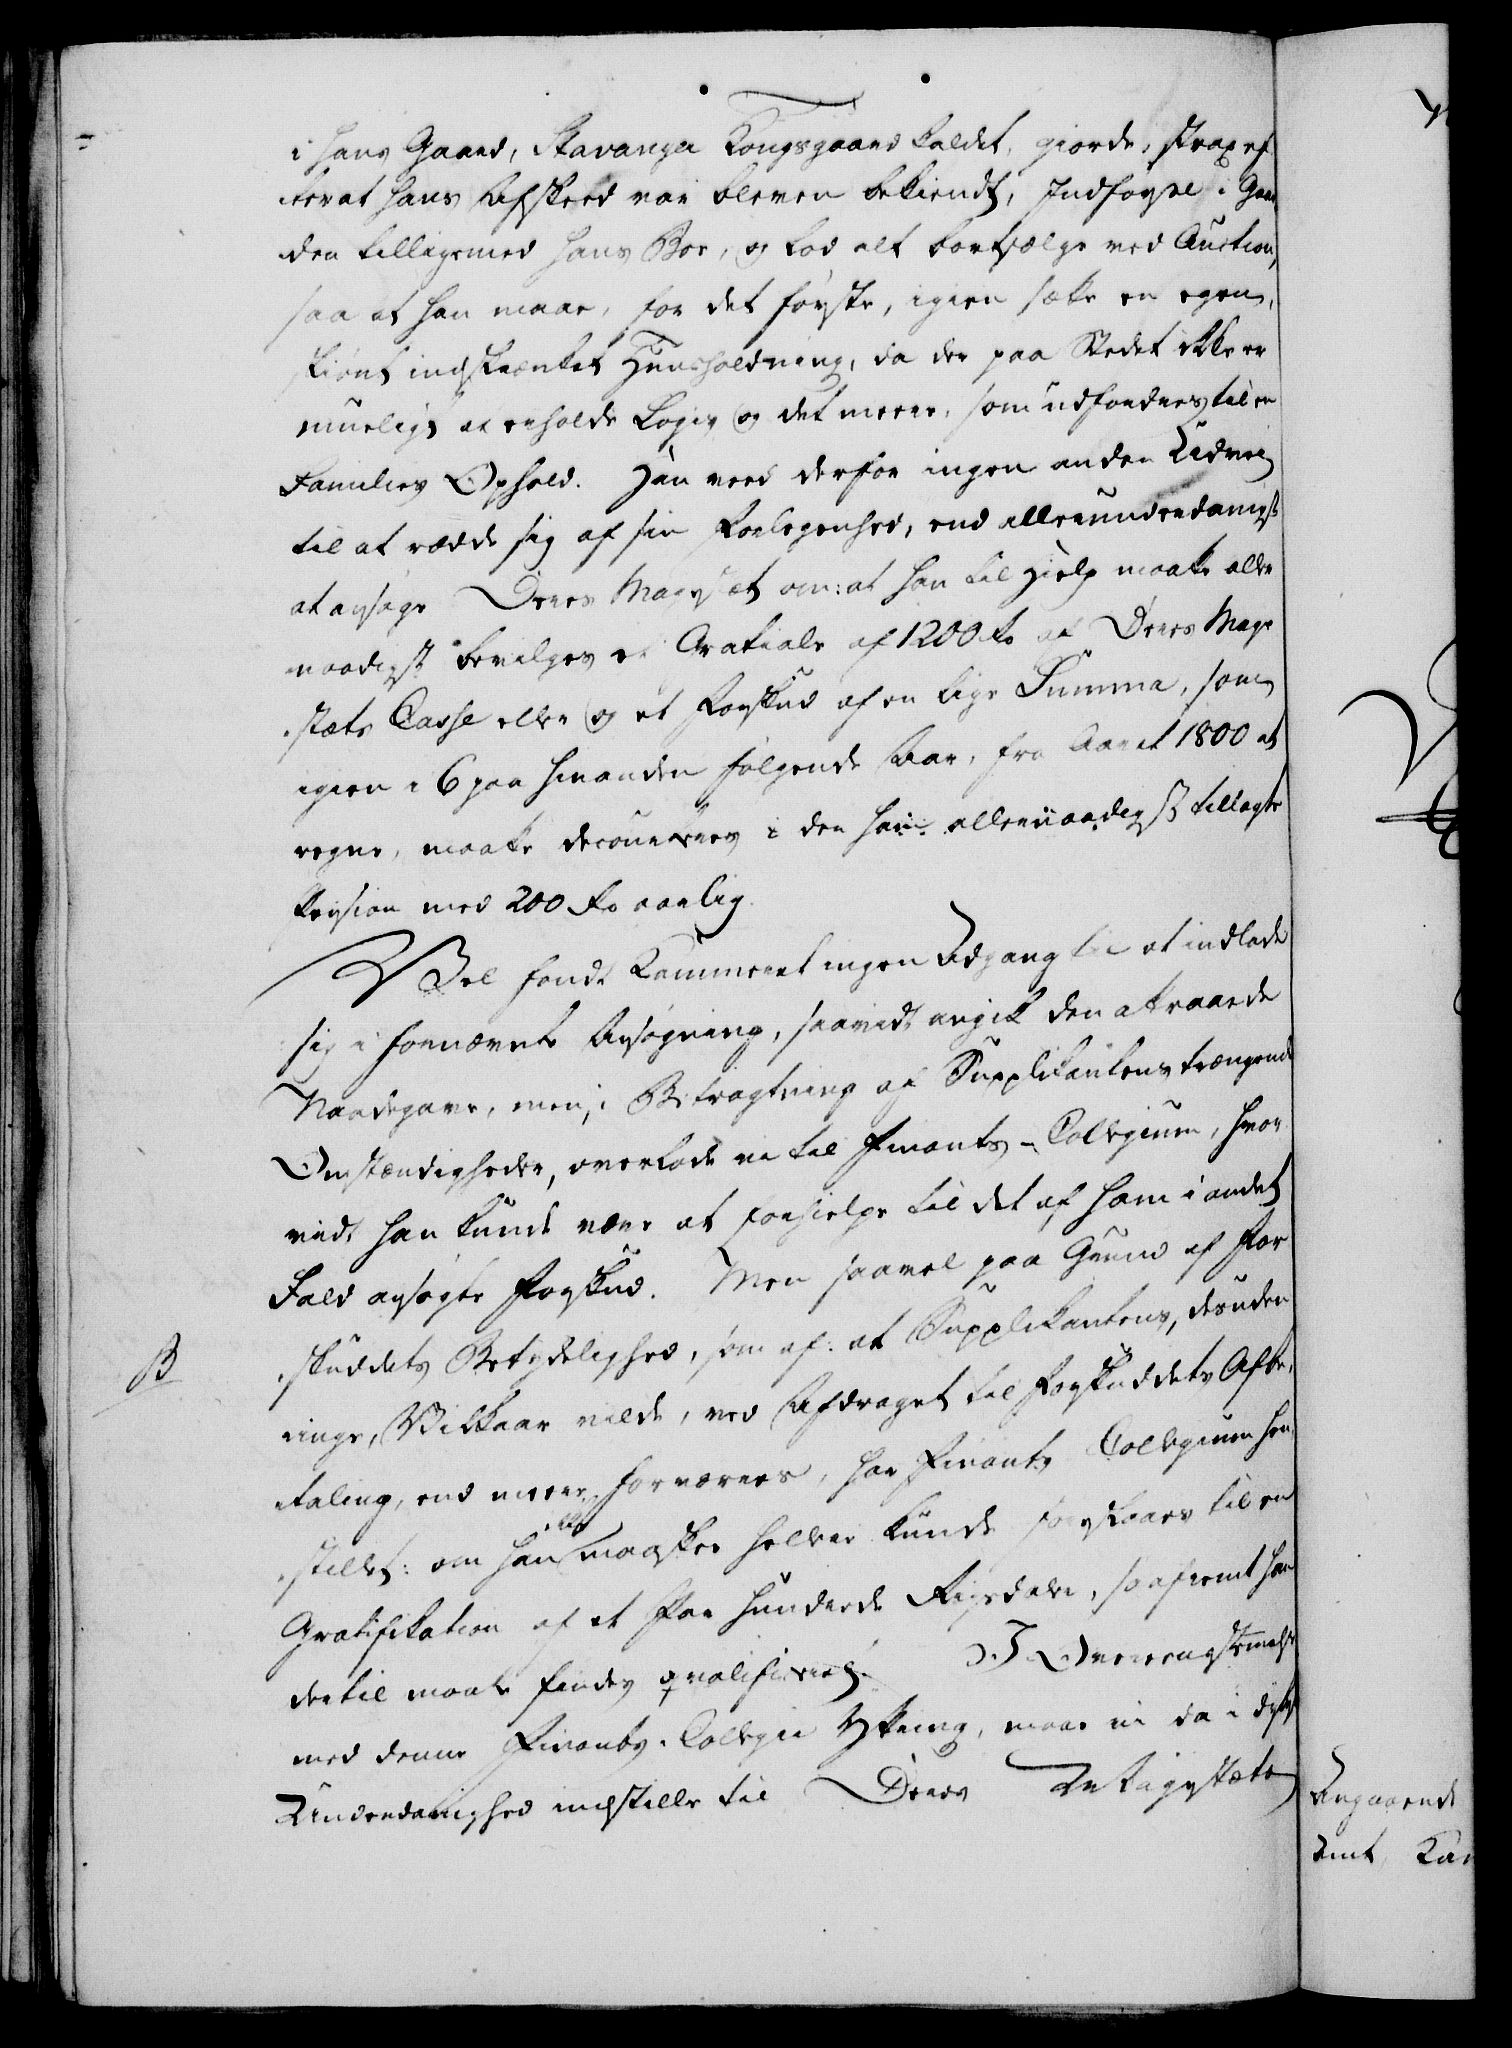 i hans Gaard, Stavanger Kongsgaard kaldet, giorde, strax ef
terat hans Afskeed var bleven bekiendt, Indførsel i Gaar
den tilligemed hans Boe, og lod alt bortsælge ved Auction,
saa at han maae, for det første, igien sætte en egen,
skiønt indskrænket Huusholdning, da der paa Stedet ikke er
mueligt at erholde Logis og det meere, som udfordres til en
Families Ophold. Han veed derfor ingen anden Udvei
til at rædde sig af sin Forlegenhed, end allerunderdanigst
at ansøge Deres Majestæt om: at han til Hielp maatte aller
naadigst bevilges et Gratiale af 1200 rd af Deres Maje
stæts Casse eller og et Forskud af en lige Summa, som
igien i 6 paa hinanden følgende Aar, fra Aaret 1800 at
regne, maatte decourteres i den ham allernaadigst tillagte
Pension med 200 rd aarlig.
Vel fandt Kammeret ingen Adgang til at indlade
sig i fornævnte Ansøgning, saavidt angik den attraaede
Naadegave, men, i Betragtning af Supplikantens trængende
Omstændigheder, overlode vi til Finants-Collegium, hvor
vidt han kunde være at forhielpe til det af ham i andet
Fald ansøgte Forskud. Men saavel paa Grund af For
skuddets Betydelighed, som af: at Supplikantens, desuden
ringe, Vilkaar vilde, ved Afdraget til Forskuddets Afbe
taling, end meere forværres, har Finants Collegium hen
stillet: om han ikke maaskee heller kunde foreslaaes til en
Gratifikation af et Par hundrede Rigsdaler, saafremt han
dertil maatte findes qvalificeret. I Overeensstemmelse
med denne Finants-Collegii Yttring, maae vi da i dybeste
Underdanighed indstille til Deres Majestæts
B
Angaaende
Amt, Kam